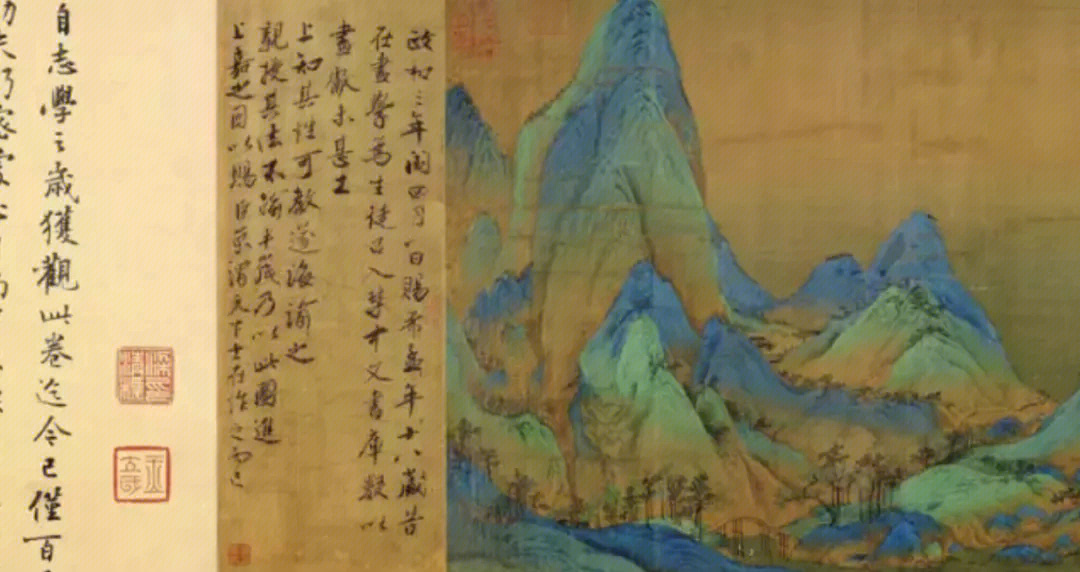 政和三年閏四月一日賜希孟年十八歲昔
在畫學為生徒召入禁中文書庫數以
畫獻未甚工
上知其性可教遂誨諭之
親授其法不踰半歲乃以此圖進
上嘉之因以賜臣京謂天下士在作之而已
自志學之歲獲觀此卷迄今已僅百